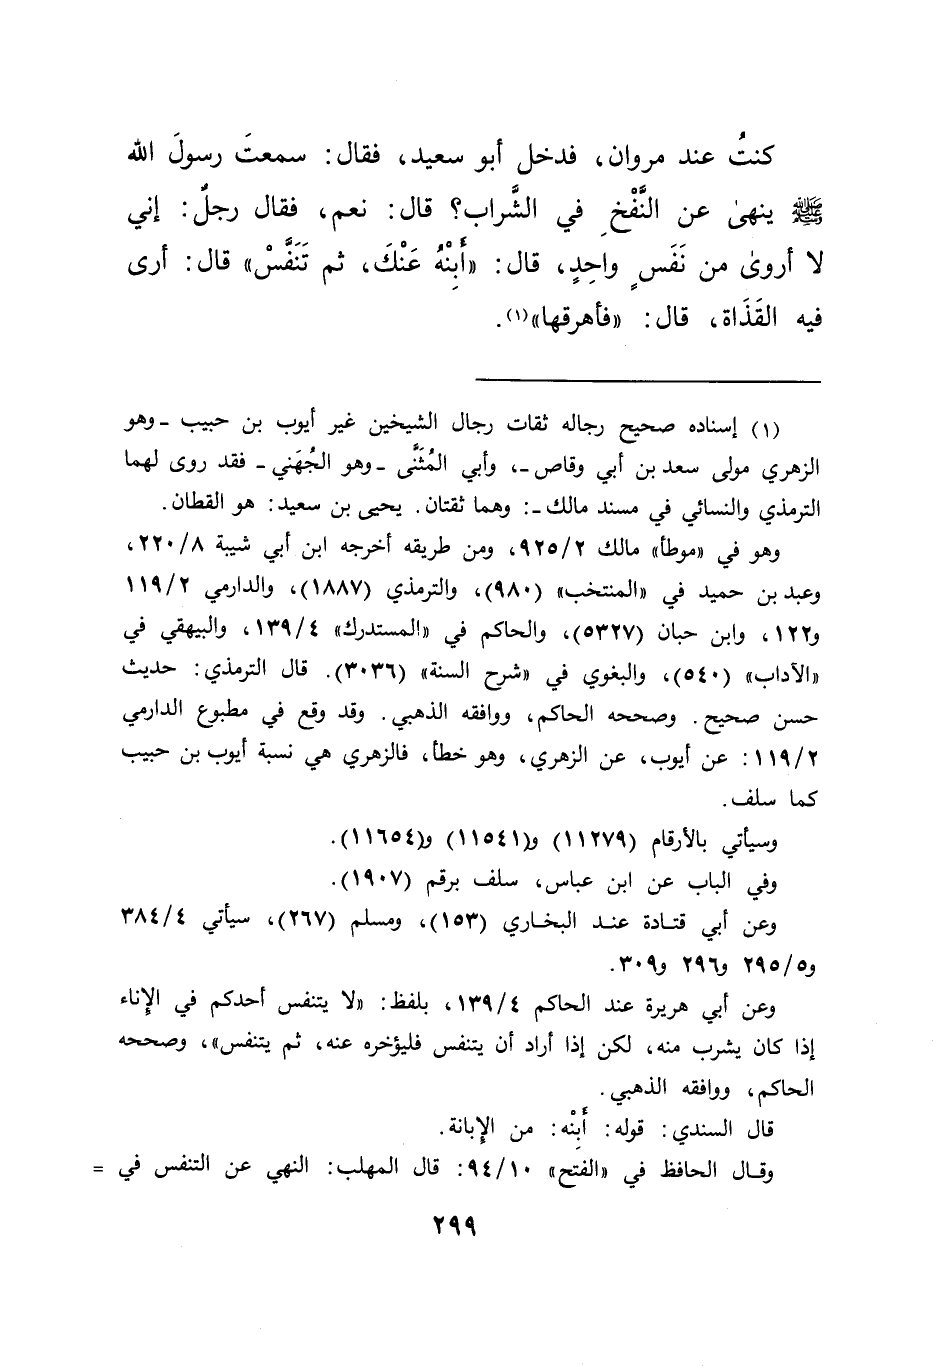 كنتُ عند مروان، فدخل أبو سعيد، فقال: سمعتَ رسولَ الله
ﷺ ينهىٰ عن النَّفْخِ في الشَّراب؟ قال: نعم، فقال رجلٌ: إني
لا أروىٰ من نَفَسٍ واحِدٍ، قال: «أَبِنْهُ عَنْكَ، ثم تَنَفَّسْ» قال: أرى
فيه القَذَاة، قال: «فأهرقها»(١).
(١) إسناده صحيح رجاله ثقات رجال الشيخين غير أيوب بن حبيب ـ وهو
الزهري مولى سعد بن أبي وقاص ـ، وأبي المُثَنَّى ـ وهو الجُهَني ـ فقد روى لهما
الترمذي والنسائي في مسند مالك ـ: وهما ثقتان. يحيى بن سعيد: هو القطان.
وهو في «موطأ» مالك ٩٢٥/٢، ومن طريقه أخرجه ابن أبي شيبة ٢٢٠/٨،
وعبد بن حميد في «المنتخب» (٩٨٠)، والترمذي (١٨٨٧)، والدارمي ١١٩/٢
و١٢٢، وابن حبان (٥٣٢٧)، والحاكم في «المستدرك» ١٣٩/٤، والبيهقي في
«الآداب» (٥٤٠)، والبغوي في «شرح السنة» (٣٠٣٦). قال الترمذي: حديث
حسن صحيح. وصححه الحاكم، ووافقه الذهبي. وقد وقع في مطبوع الدارمي
١١٩/٢: عن أيوب، عن الزهري، وهو خطأ، فالزهري هي نسبة أيوب بن حبيب
كما سلف.
وسيأتي بالأرقام (١١٢٧٩) و(١١٥٤١) و(١١٦٥٤).
وفي الباب عن ابن عباس، سلف برقم (١٩٠٧).
وعن أبي قتادة عند البخاري (١٥٣)، ومسلم (٢٦٧)، سيأتي ٣٨٤/٤
و٢٩٥/٥ و٢٩٦ و٣٠٩.
وعن أبي هريرة عند الحاكم ١٣٩/٤، بلفظ: «لا يتنفس أحدكم في الإناء
إذا كان يشرب منه، لكن إذا أراد أن يتنفس فليؤخره عنه، ثم يتنفس»، وصححه
الحاكم، ووافقه الذهبي.
قال السندي: قوله: أَبِنْه: من الإبانة.
وقال الحافظ في «الفتح» ٩٤/١٠: قال المهلب: النهي عن التنفس في =
٢٩٩